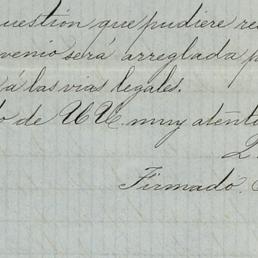 uestión que pudiere re
venio será arreglada p
á las vias legales.
o de UU. muy atento
Firmado.